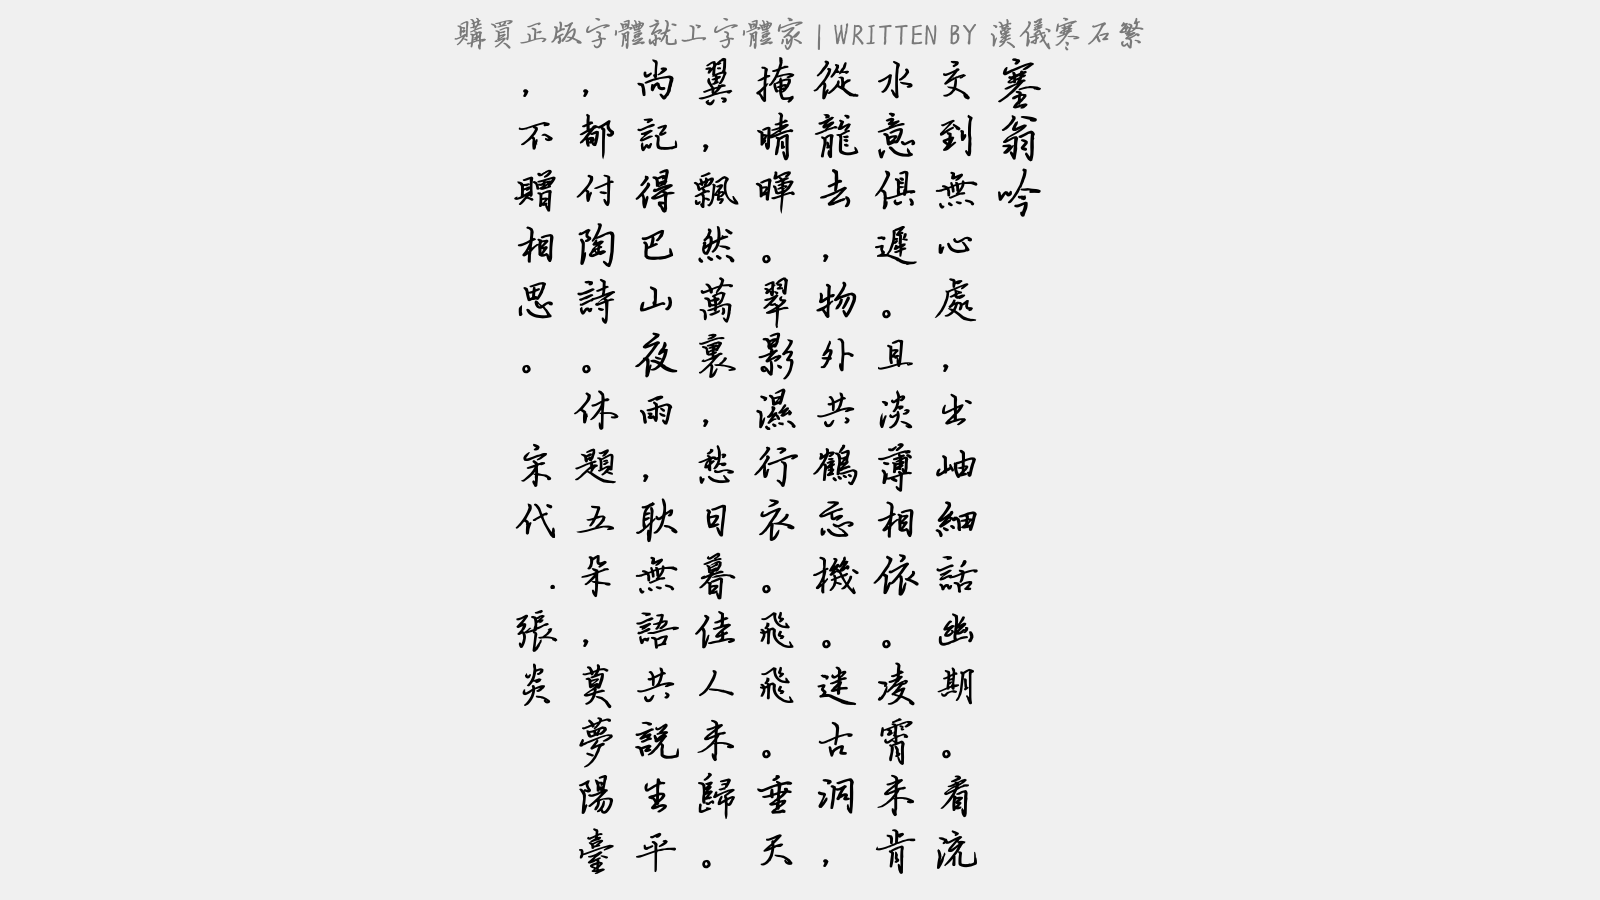 購買正版字體就上字體家 | WRITTEN BY 漢儀寒石繁
塞翁吟
交到無心處，出岫細話幽期。看流
水意俱遲。且淡薄相依。凌霄未肯
從龍去，物外共鶴忘機。迷古洞，
掩晴暉。翠影濕行衣。飛飛。垂天
翼，飄然萬裏，愁日暮佳人未歸。
尚記得巴山夜雨，耿無語共說生平
，都付陶詩。休題五朵，莫夢陽臺
，不贈相思。 宋代.張炎